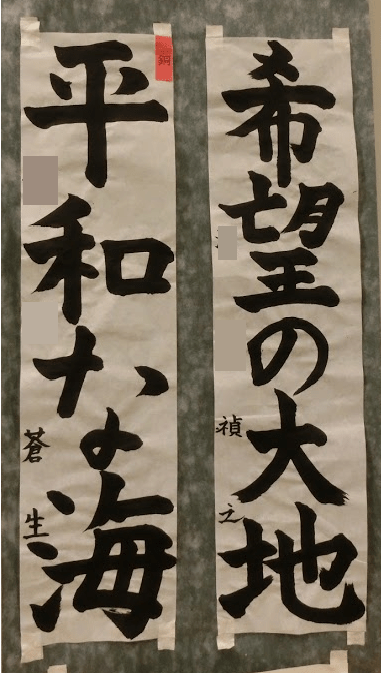 希望の大地
禎之
平和な海
蒼生
銅